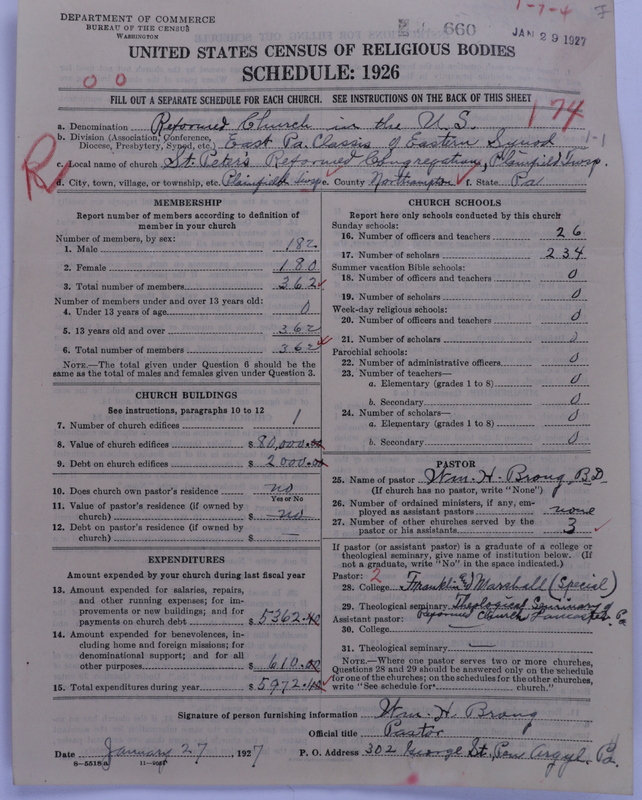 DEPARTMENT OF COMMERCE
BUREAU OF THE CENSUS
WASHINGTON
660
JAN 29 1927
1-7-4
UNITED STATES CENSUS OF RELIGIOUS BODIES
SCHEDULE: 1926
0 0
FILL OUT A SEPARATE SCHEDULE FOR EACH CHURCH. SEE INSTRUCTIONS ON THE BACK OF THIS SHEET
174
a. Denomination Reformed Church in the U.S.
b. Division (Association, Conference, Diocese, Presbytery, Synod, etc.) East Pa. Classis of Eastern Synod
1-1
R
c. Local name of church St. Peter's Reformed Congregation, Plainfield Twsp.
d. City, town, village, or township, etc. Plainfield Twsp e. County Northampton f. State Pa
MEMBERSHIP
Report number of members according to definition of member in your church
Number of members, by sex:
1. Male 182
2. Female 180
3. Total number of members 362
Number of members under and over 13 years old:
4. Under 13 years of age 0
5. 13 years old and over 362
6. Total number of members 362
NOTE.—The total given under Question 6 should be the same as the total of males and females given under Question 3.
CHURCH BUILDINGS
See instructions, paragraphs 10 to 12
7. Number of church edifices 1
8. Value of church edifices $ 80,000.00
9. Debt on church edifices $ 2000.00
10. Does church own pastor's residence no
Yes or No
11. Value of pastor's residence (if owned by church) $ no
12. Debt on pastor's residence (if owned by church) $ —
EXPENDITURES
Amount expended by your church during last fiscal year
13. Amount expended for salaries, repairs, and other running expenses; for improvements or new buildings; and for payments on church debt $ 5362.40
14. Amount expended for benevolences, including home and foreign missions; for denominational support; and for all other purposes $ 610.00
15. Total expenditures during year $ 5972.40
CHURCH SCHOOLS
Report here only schools conducted by this church
Sunday schools:
16. Number of officers and teachers 26
17. Number of scholars 234
Summer vacation Bible schools:
18. Number of officers and teachers 0
19. Number of scholars 0
Week-day religious schools:
20. Number of officers and teachers 0
21. Number of scholars 0
Parochial schools:
22. Number of administrative officers 0
23. Number of teachers—
a. Elementary (grades 1 to 8) 0
b. Secondary 0
24. Number of scholars—
a. Elementary (grades 1 to 8) 0
b. Secondary 0
PASTOR
25. Name of pastor Wm. H. Brong, B.D.
(If church has no pastor, write "None")
26. Number of ordained ministers, if any, employed as assistant pastors none
27. Number of other churches served by the pastor or his assistants 3
If pastor (or assistant pastor) is a graduate of a college or theological seminary, give name of institution below. (If not a graduate, write "No" in the space indicated.)
Pastor: 2
28. College Franklin & Marshall (Special)
29. Theological seminary Theological Seminary of Reformed Church Lancaster, Pa
Assistant pastor:
30. College —
31. Theological seminary —
NOTE.—Where one pastor serves two or more churches, Questions 28 and 29 should be answered only on the schedule for one of the churches; on the schedules for the other churches, write "See schedule for church."
Signature of person furnishing information Wm. H. Brong
Official title Pastor
Date January 27, 1927 P. O. Address 302 George St. Pen Argyl, Pa.